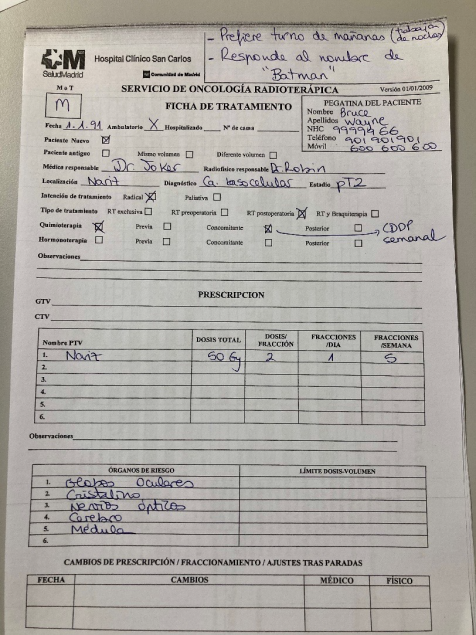 - Prefiere turno de mañanas (trabaja de noches)
- Responde al nombre de
"Batman"
SaludMadrid
Hospital Clínico San Carlos
Comunidad de Madrid
M o T
SERVICIO DE ONCOLOGÍA RADIOTERÁPICA
Versión 01/01/2009
M
FICHA DE TRATAMIENTO
PEGATINA DEL PACIENTE
Nombre Bruce
Apellidos Wayne
NHC 9999466
Teléfono 901 901 901
Móvil 600 600 600
Fecha 1.1.91 Ambulatorio X Hospitalizado Nº de cama
Paciente Nuevo
Paciente antiguo Mismo volumen Diferente volumen
Médico responsable Dr. Joker Radiofísico responsable Dr. Robin
Localización Nariz Diagnóstico Ca. basocelular Estadio pT2
Intención de tratamiento Radical X Paliativa
Tipo de tratamiento RT exclusiva RT preoperatoria RT postoperatoria X RT y Braquiterapia
Quimioterapia X Previa Concomitante X Posterior → CDDP
semanal
Hormonoterapia Previa Concomitante Posterior
Observaciones
PRESCRIPCION
GTV
CTV
Nombre PTV DOSIS TOTAL DOSIS/ FRACCIÓN FRACCIONES /DIA FRACCIONES /SEMANA
1. Nariz 50 Gy 2 1 5
2.
3.
4.
5.
6.
Observaciones
ÓRGANOS DE RIESGO LÍMITE DOSIS-VOLUMEN
1. Globos Oculares
2. Cristalino
3. Nervios ópticos
4. Cerebro
5. Médula
6.
CAMBIOS DE PRESCRIPCIÓN / FRACCIONAMIENTO / AJUSTES TRAS PARADAS
FECHA CAMBIOS MÉDICO FÍSICO